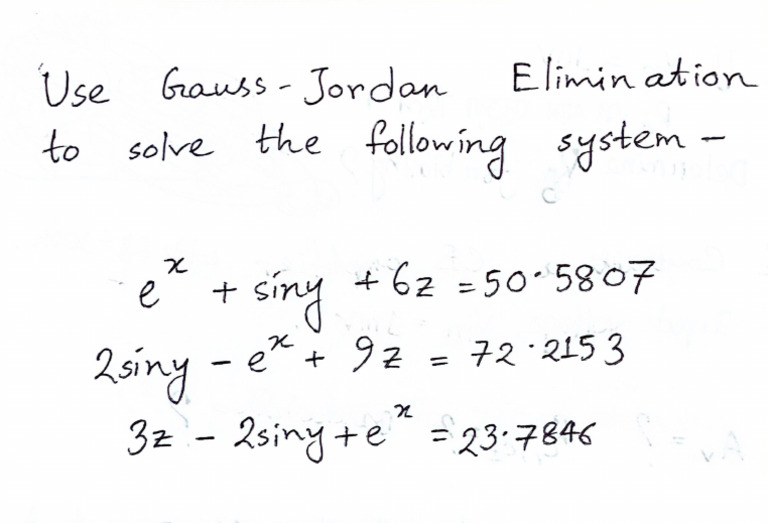 Use Gauss-Jordan Elimination
to solve the following system –
eˣ + siny + 6z = 50·5807
2siny – eˣ + 9z = 72·2153
3z – 2siny + eˣ = 23·7846